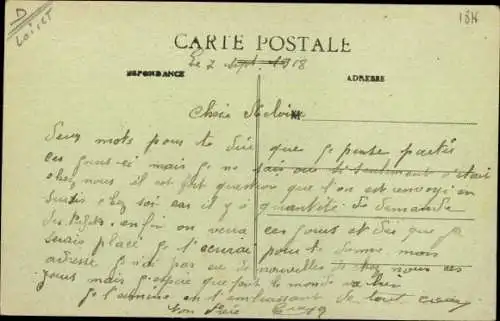 D
LOIRET
1318
CARTE POSTALE
Le 2 Sept. 1918
RESPONDANCE
ADRESSE
Chère
Deux mots pour te dire que je pense partir
ces jours-ci mais je ne sais où si seulement c'était
chez nous il est fait question que l'on est renvoyé en
sursis chez soi car il y a quantité de demande
enfin on verra ces jours et dès que je
serais placé je t'écrirai pour te donner mon
adresse je n'ai pas eu de nouvelles de chez nous ces
jours mais j'espère que tout le monde va bien
je termine en t'embrassant de tout cœur
ton frère